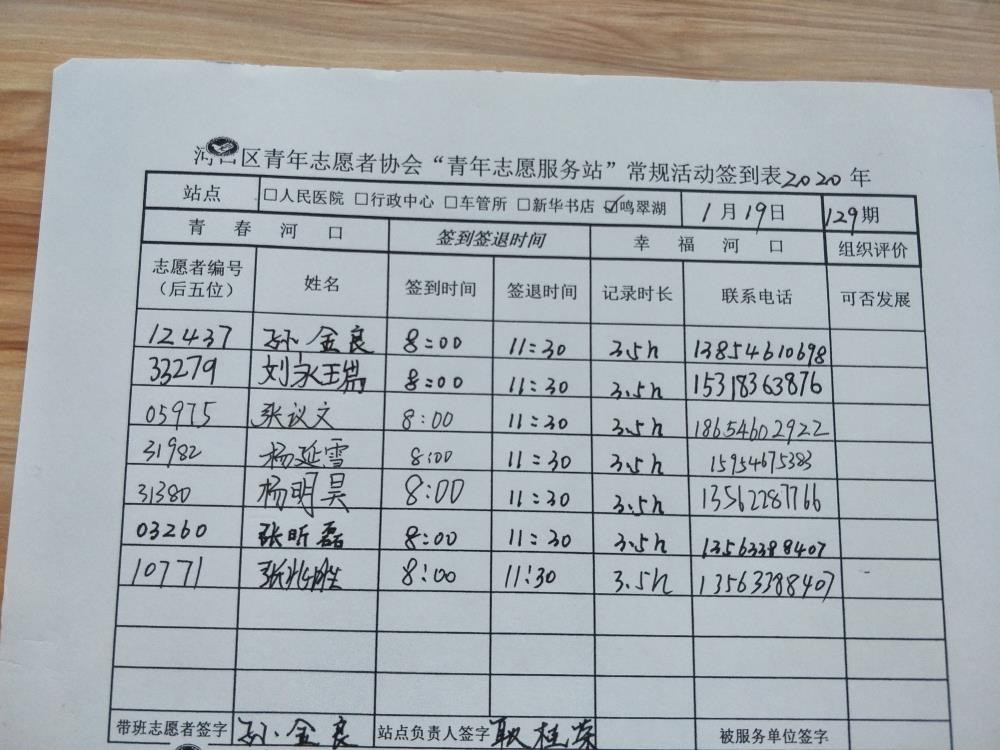 河口区青年志愿者协会“青年志愿服务站”常规活动签到表2020年
站点 □人民医院 □行政中心 □车管所 □新华书店 ☑鸣翠湖 1月19日 129期
青春河口 签到签退时间 幸福河口 组织评价
志愿者编号（后五位） 姓名 签到时间 签退时间 记录时长 联系电话 可否发展
12437 孙金良 8:00 11:30 3.5h 13854610698
33279 刘永瑞 8:00 11:30 3.5h 15318363876
05975 张议文 8:00 11:30 3.5h 18654602922
31982 杨延雪 8:00 11:30 3.5h 15954675383
31380 杨明昊 8:00 11:30 3.5h 13562287766
03260 张昕磊 8:00 11:30 3.5h 13563388407
10771 张 8:00 11:30 3.5h 13563388407
带班志愿者签字 孙金良 站点负责人签字 耿桂荣 被服务单位签字